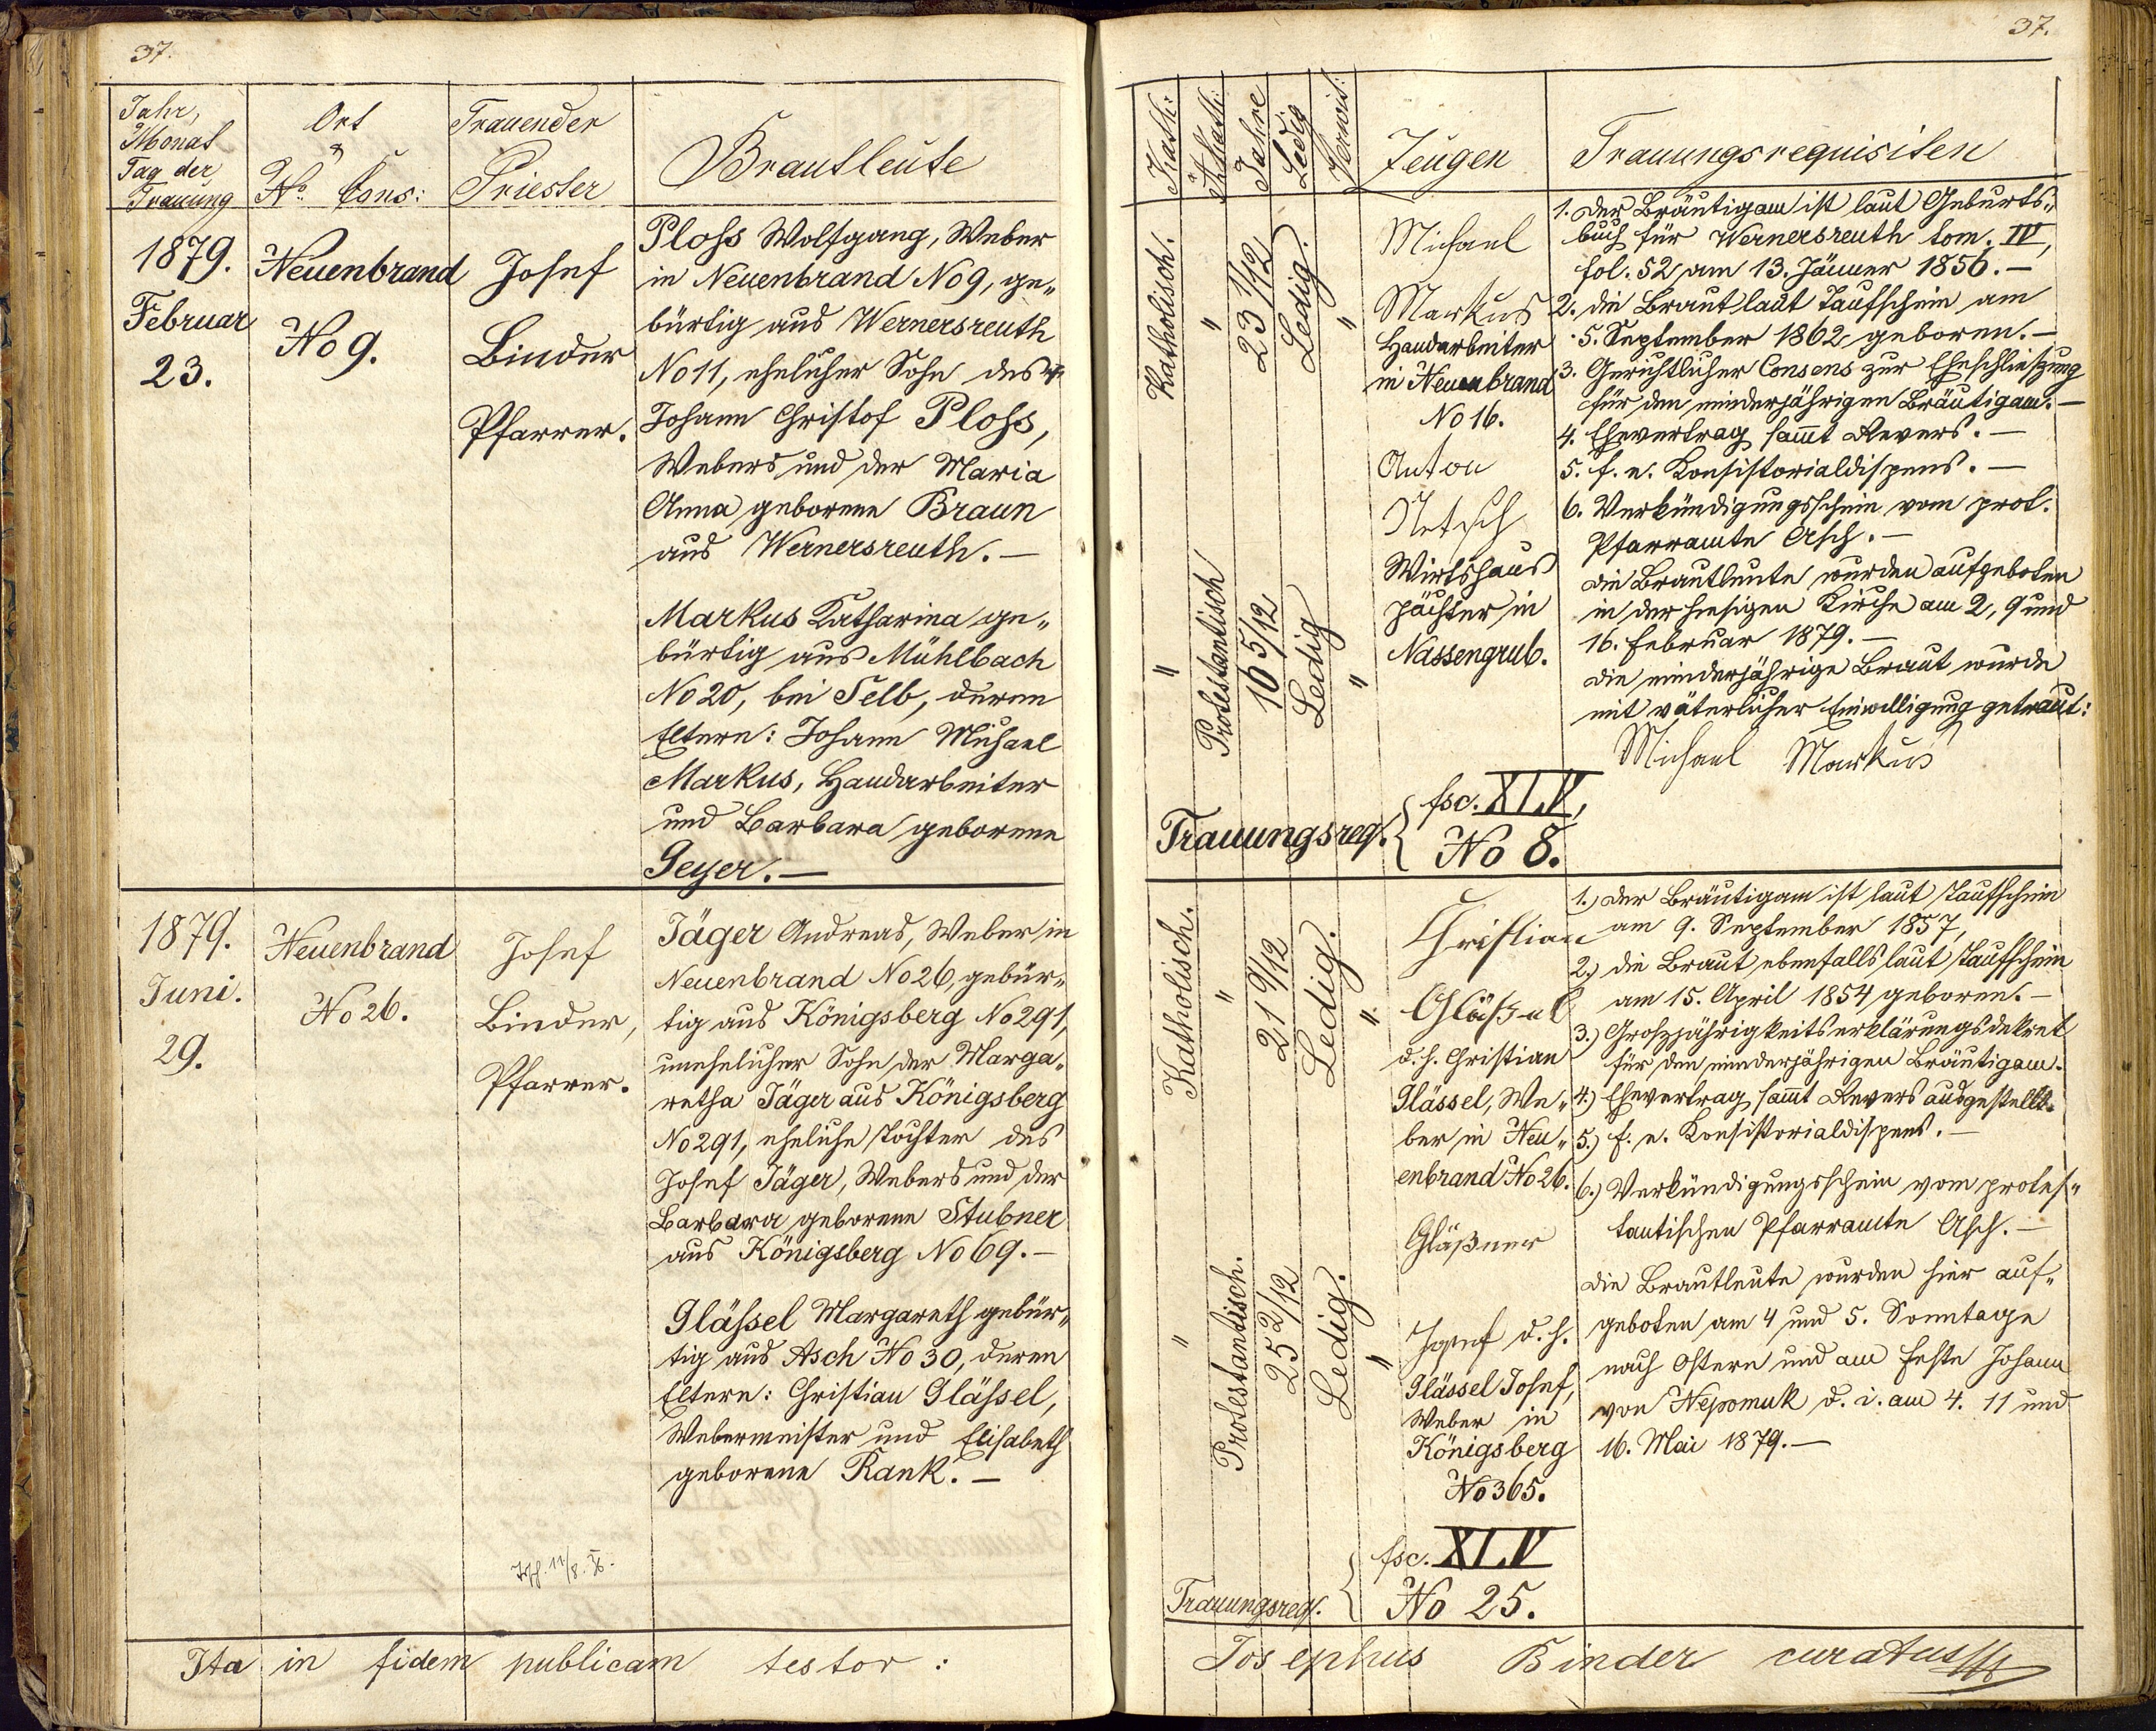 37.
Jahr,
Monat
Tag der
Trauung
Ort
&
No. Cons:
Trauender
Priester
Brautleute
1879.
Februar
23.
Neuenbrand
No 9.
Josef
Binder
Pfarrer.
Ploß Wolfgang, Weber
in Neuenbrand No 9, ge„
bürtig aus Wernersreuth
No 11, ehelicher Sohn des
Johann Christof Ploß,
Webers und der Maria
Anna geborene Braun
aus Wernersreuth. —
Markus Katharina ge„
bürtig aus Mühlbach
No 20, bei Selb, deren
Eltern: Johann Michael
Markus, Handarbeiter
und Barbara geborene
Geyer. —
1879.
Juni.
29.
Neuenbrand
No 26.
Josef
Binder,
Pfarrer.
Jäger Andreas, Weber in
Neuenbrand No 26, gebür„
tig aus Königsberg No 291,
unehelicher Sohn der Marga„
retha Jäger aus Königsberg
No 291, eheliche Tochter des
Josef Jäger, Webers und der
Barbara geborene Stubner
aus Königsberg No 69. —
Gläßel Margareth gebür„
tig aus Asch No 30, deren
Eltern: Christian Gläßel,
Webermeister und Elisabeth
geborene Rank. —
Ita in fidem publicam testor :
37.
Kath:
Akath:
Jahre
Ledig
Verwit:
Zeugen
Trauungsrequisiten
Katholisch.
"
23 1/12
Ledig.
"
"
Protestantisch
16 5/12
Ledig
"
Michael
Markus
Handarbeiter
in Neuenbrand
No 16.
Anton
Netsch
Wirtshaus
pächter in
Nassengrub.
1. Der Bräutigam ist laut Geburts„
buch für Wernersreuth tom. IV,
fol. 52 am 13. Jänner 1856. —
2. die Braut laut Taufschein am
5. September 1862 geboren. —
3. Gerichtlicher Consens zur Eheschließung
für den minderjährigen Bräutigam. —
4. Ehevertrag sammt Revers. —
5. f. e. Konsistorialdispens. —
6. Verkündigungsschein vom prot.
Pfarramte Asch. —
Die Brautleute wurden aufgeboten
in der hiesigen Kirche am 2, 9 und
16. Februar 1879. —
Die minderjährige Braut wurde
mit väterlicher Einwilligung getraut:
Michael Markus
Trauungsreq. { fsc. XLV,
No 8.
Katholisch.
"
21 9/12
Ledig.
"
"
Protestantisch.
25 2/12
Ledig.
"
Christian
Gläßel
d. h. Christian
Glässel, We„
ber in Neu„
enbrand No 26.
Gläßner
Josef d. h.
Glässel Josef,
Weber in
Königsberg
No 365.
1.) Der Bräutigam ist laut Taufschein
am 9. September 1857,
2.) die Braut ebenfalls laut Taufschein
am 15. April 1854 geboren. —
3.) Großjährigkeitserklärungsdekret
für den minderjährigen Bräutigam.
4.) Ehevertrag sammt Revers ausgestellt.
5.) f. e. Konsistorialdispens. —
6.) Verkündigungsschein vom protes„
tantischen Pfarramte Asch. —
Die Brautleute wurden hier auf„
geboten am 4 und 5. Sonntage
nach Ostern und am Feste Johann
von Nepomuk d. i. am 4. 11 und
16. Mai 1879. —
Trauungsreq. { fsc. XLV
No 25.
Josephus Binder curatus